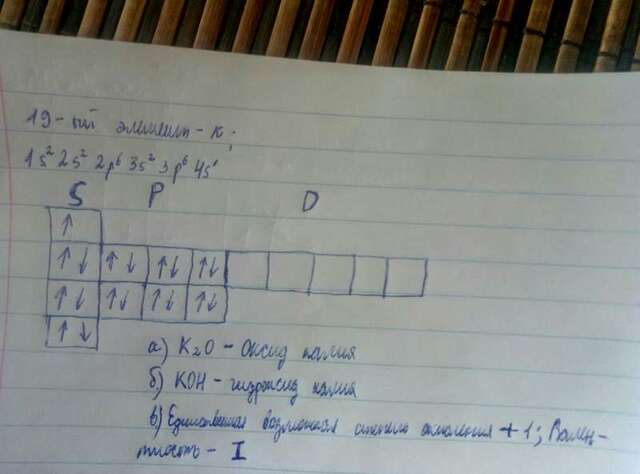 19-ый элемент - К;
1s² 2s² 2p⁶ 3s² 3p⁶ 4s¹
S P D
↑
↑↓ ↑↓ ↑↓ ↑↓
↑↓ ↑↓ ↑↓ ↑↓
↑↓
а) K₂O - Оксид калия
б) KOH - гидроксид калия
в) Единственная возможная степень окисления +1; Вален-
тность - I